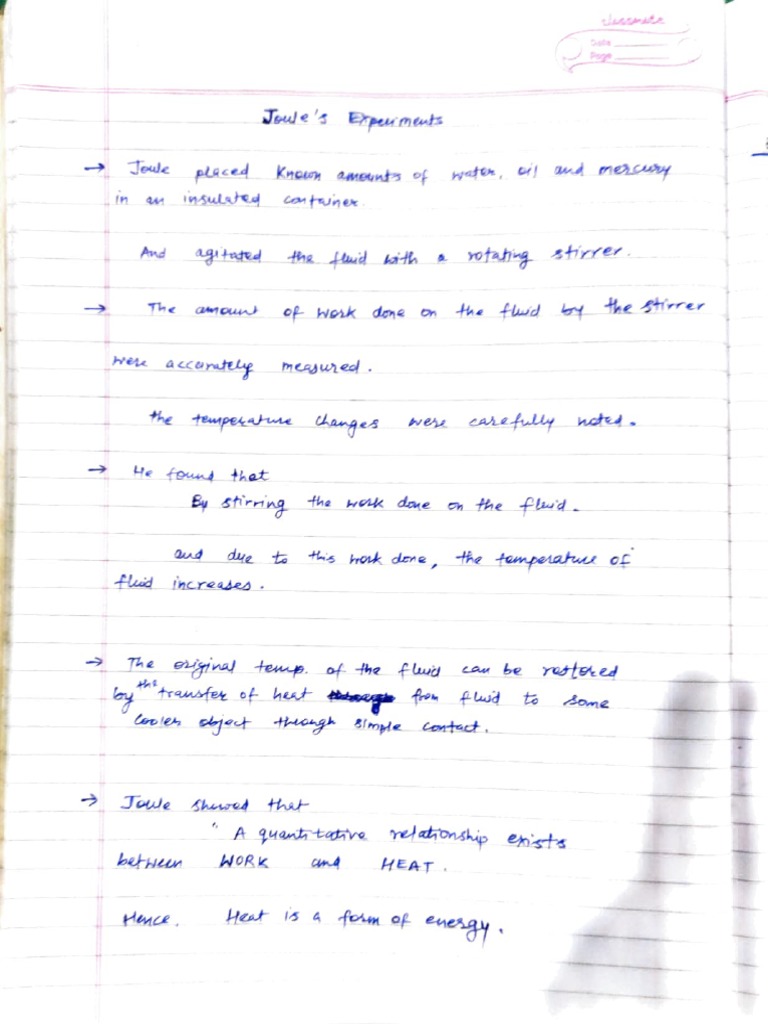 classmate
Date
Page
Joule's Experiments
→ Joule placed Known amounts of water, oil and mercury
in an insulated container.
And agitated the fluid with a rotating stirrer.
→ The amount of work done on the fluid by the stirrer
were accurately measured.
the temperature changes were carefully noted.
→ He found that
By stirring the work done on the fluid.
and due to this work done, the temperature of
fluid increases.
→ The original temp. of the fluid can be restored
by the transfer of heat from fluid to some
cooler object through simple contact.
→ Joule showed that
" A quantitative relationship exists
between WORK and HEAT.
Hence. Heat is a form of energy.